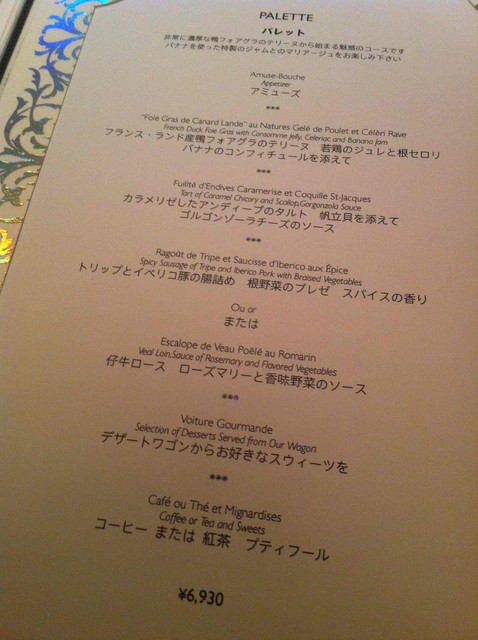 PALETTE
パレット
非常に濃厚な鴨フォアグラのテリーヌから始まる魅惑のコースです
バナナを使った特製のジャムとのマリアージュをお楽しみ下さい
Amuse-Bouche
Appetizer
アミューズ
***
"Foie Gras de Canard Lande" au Natures Gelé de Poulet et Céléri Rave
French Duck Foie Gras with Consomme Jelly, Celeriac and Banana Jam
フランス・ランド産鴨フォアグラのテリーヌ 若鶏のジュレと根セロリ
バナナのコンフィチュールを添えて
***
Fuillté d'Endives Caramerise et Coquille St-Jacques
Tart of Caramel Chicory and Scallop,Gorgonzola Sauce
カラメリゼしたアンディーブのタルト 帆立貝を添えて
ゴルゴンゾーラチーズのソース
***
Ragoût de Tripe et Saucisse d'Iberico aux Épice
Spicy Sausage of Tripe and Iberico Pork with Braised Vegetables
トリップとイベリコ豚の腸詰め 根野菜のブレゼ スパイスの香り
Ou or
または
Escalope de Veau Poêlé au Romarin
Veal Loin,Sauce of Rosemary and Flavored Vegetables
仔牛ロース ローズマリーと香味野菜のソース
***
Voiture Gourmande
Selection of Desserts Served from Our Wagon
デザートワゴンからお好きなスウィーツを
***
Café ou Thé et Mignardises
Coffee or Tea and Sweets
コーヒー または 紅茶 プティフール
¥6,930